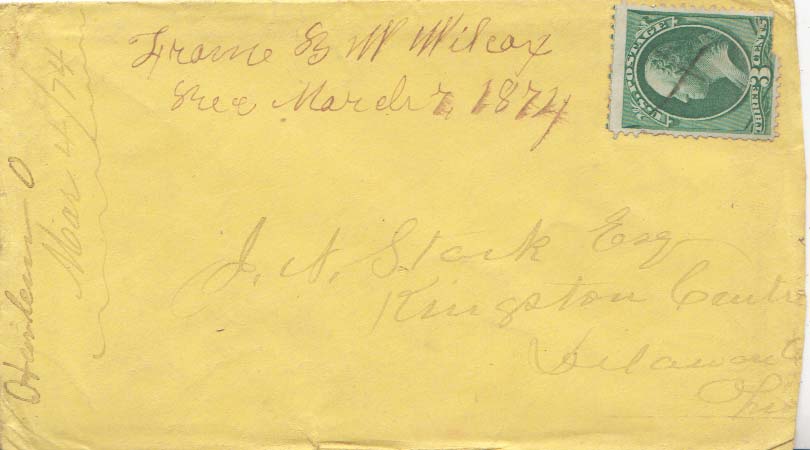 Frome B W Wilcox
Rec March 7, 1874
U.S. POSTAGE
3 CENTS
Harlem O
Mar 4/74
J. N. Stark Esq
Kingston Centre
Delaware Co
Ohio